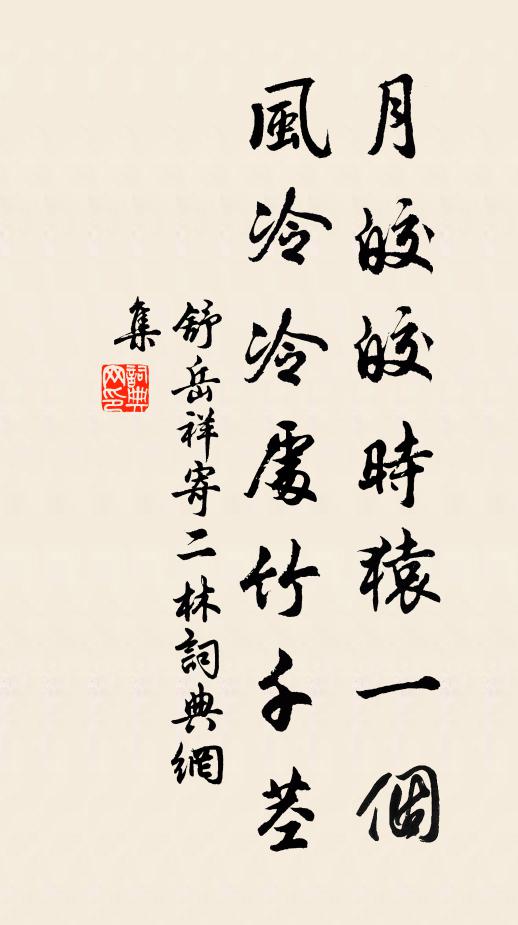 月皎皎時猿一個
風冷冷處竹千莖
舒岳祥寄二林詞典網
集
詞典網印